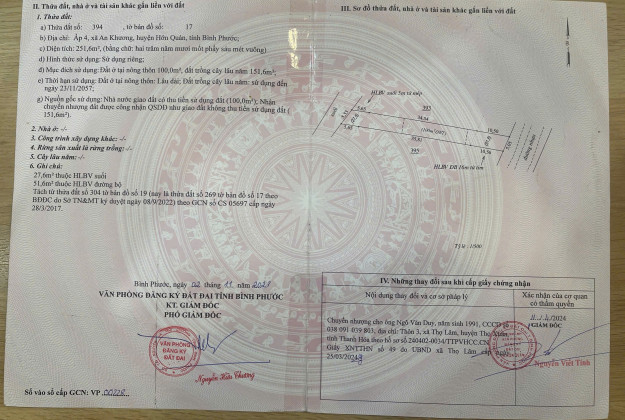 II. Thửa đất, nhà ở và tài sản khác gắn liền với đất
1. Thửa đất:
a) Thửa đất số: 394 , tờ bản đồ số: 17
b) Địa chỉ: Ấp 4, xã An Khương, huyện Hớn Quản, tỉnh Bình Phước;
c) Diện tích: 251,6m², (bằng chữ: hai trăm năm mươi mốt phẩy sáu mét vuông)
d) Hình thức sử dụng: Sử dụng riêng;
đ) Mục đích sử dụng: Đất ở tại nông thôn 100,0m², đất trồng cây lâu năm 151,6m²;
e) Thời hạn sử dụng: Đất ở tại nông thôn: Lâu dài; Đất trồng cây lâu năm: sử dụng đến
ngày 23/11/2057;
g) Nguồn gốc sử dụng: Nhà nước giao đất có thu tiền sử dụng đất (100,0m²); Nhận
chuyển nhượng đất được công nhận QSDĐ như giao đất không thu tiền sử dụng đất (
151,6m²).
2. Nhà ở: -/-
3. Công trình xây dựng khác: -/-
4. Rừng sản xuất là rừng trồng: -/-
5. Cây lâu năm: -/-
6. Ghi chú:
27,6m² thuộc HLBV suối
51,6m² thuộc HLBV đường bộ
Tách từ thửa đất số 304 tờ bản đồ số 19 (nay là thửa đất số 269 tờ bản đồ số 17 theo
BĐĐC do Sở TN&MT ký duyệt ngày 08/9/2022) theo GCN số CS 05697 cấp ngày
28/3/2017.
Bình Phước, ngày 02 tháng 11 năm
VĂN PHÒNG ĐĂNG KÝ ĐẤT ĐAI TỈNH BÌNH PHƯỚC
KT. GIÁM ĐỐC
PHÓ GIÁM ĐỐC
VĂN PHÒNG
ĐĂNG KÝ
ĐẤT ĐAI
Nguyễn Hữu Chương
Số vào sổ cấp GCN: VP
III. Sơ đồ thửa đất, nhà ở và tài sản khác gắn liền với đất
HLBV suối
suối
393
395
10,50
đường nhựa
HLBV ĐB
Tỷ lệ : 1/500
IV. Những thay đổi sau khi cấp giấy chứng nhận
Nội dung thay đổi và cơ sở pháp lý
Xác nhận của cơ quan
có thẩm quyền
Chuyển nhượng cho ông Ngô Văn Duy, năm sinh 1991, CCCD số
038 091 039 803; địa chỉ: Thôn 3, xã Thọ Lâm, huyện Thọ Xuân,
tỉnh Thanh Hóa theo hồ sơ số 240402-0034/TTPVHCC.CN.
Giấy XNTTHN số 49 do UBND xã Thọ Lâm cấp ngày
25/03/2024
/2024
GIÁM ĐỐC
Nguyễn Viết Tình